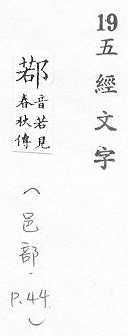 19 五經文字
鄀
音若見
春秋傳
(邑部. P.44.)